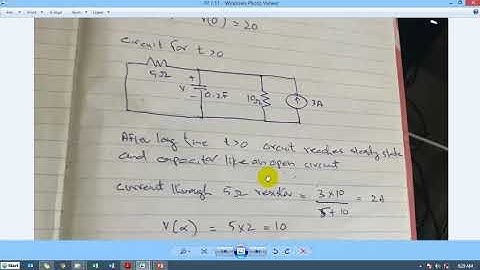 PP 7.11 - Windows Photo Viewer
V(0) = 20
Circuit for t>0
5Ω
+
V
-
0.2F
10Ω
3A
After long time t>0 circuit reaches steady state
and capacitor like an open circuit
Current through 5Ω resistor = 3×10 / 5+10 = 2A
V(α) = 5×2 = 10
Start